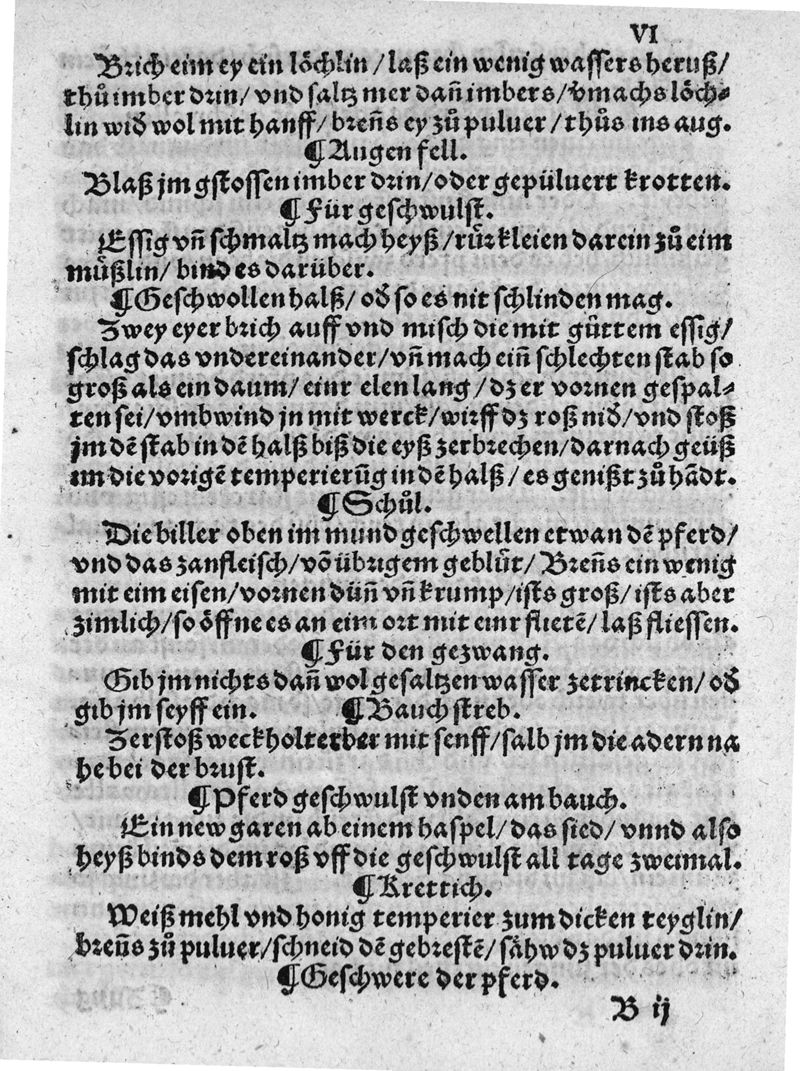 VI
Brich eim ey ein löchlin / laß ein wenig wassers heruß /
thů imber drin / vnd saltz mer dañ imbers / v̈machs löch⸗
lin wid̕ wol mit hanff / breñs ey zů puluer / thůs ins aug.
¶ Augen fell.
Blaß jm gstossen imber drin / oder gepüluert krotten.
¶ Für geschwulst.
Essig vñ schmaltz mach heyß / růr kleien darein zů eim
můßlin / bind es darüber.
¶ Geschwollen halß / od̕ so es nit schlinden mag.
Zwey eyer brich auff vnd misch die mit gůttem essig /
schlag das vndereinander / vñ mach eiñ schlechten stab so
groß als ein daum / einr elen lang / dz er vornen gespal⸗
ten sei / vmbwind jn mit werck / wirff dz roß nid̕ / vnd stoß
jm dē stab in dē halß biß die eyß zerbrechen / darnach geüß
im die vorigē temperierūg in dē halß / es genißt zů hādt.
¶ Schůl.
Die biller oben im mund geschwellen etwan dē pferd /
vnd das zanfleisch / vō übrigem geblůt / Breñs ein wenig
mit eim eisen / vornen düñ vñ krump / ists groß / ists aber
zimlich / so öffne es an eim ort mit einr flietē / laß fliessen.
¶ Für den gezwang.
Gib jm nichts dañ wol gesaltzen wasser zetrincken / od̕
gib jm seyff ein. ¶ Bauch streb.
Zerstoß weckholterber mit senff / salb jm die adern na
he bei der brust.
¶ Pferd geschwulst vnden am bauch.
Ein new garen ab einem haspel / das sied / vnnd also
heyß binds dem roß vff die geschwulst all tage zweimal.
¶ Krettich.
Weiß mehl vnd honig temperier zum dicken teyglin /
breñs zů puluer / schneid dē gebrestē / sähw dz puluer drin.
¶ Geschwere der pferd.
B ij